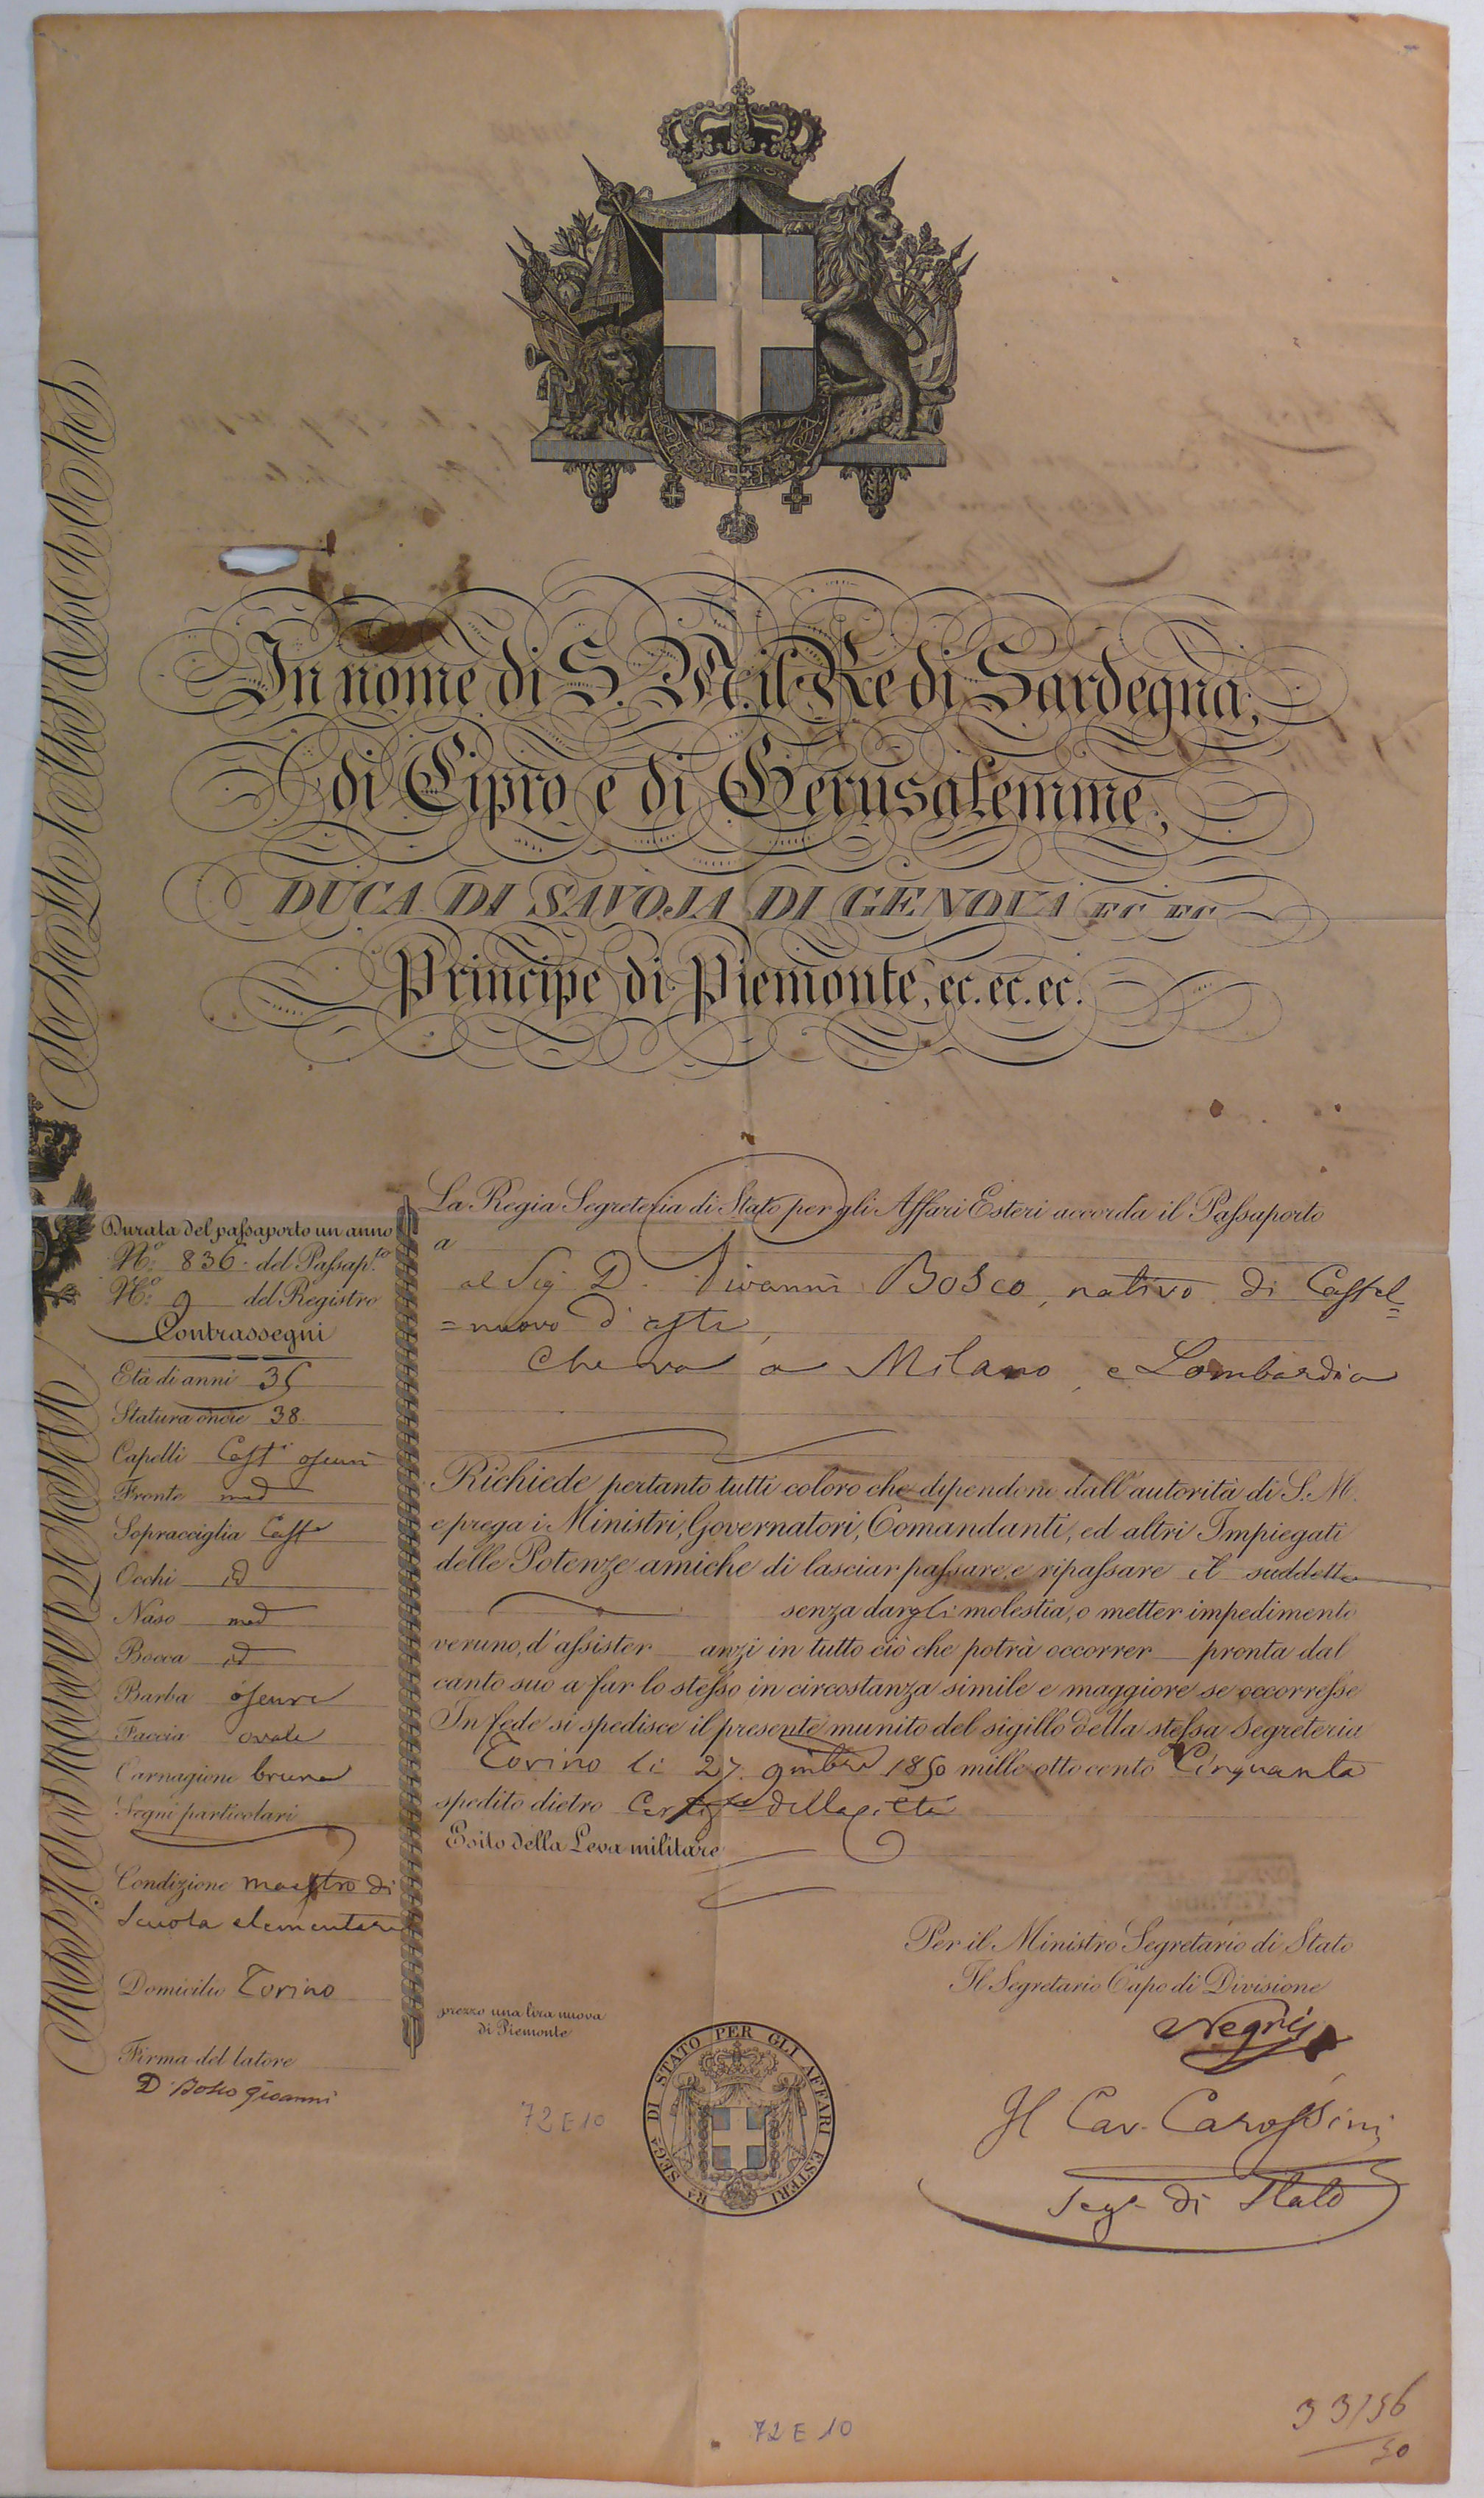 In nome di S. M. il Re di Sardegna,
di Cipro e di Gerusalemme,
DUCA DI SAVOJA DI GENOVA EC EC
Principe di Piemonte, ec. ec. ec.
Durata del passaporto un anno
N.º 836. del Passap.to
N.º 9 del Registro
Contrassegni
Età di anni 35
Statura oncie 38.
Capelli Cast.i oscuri
Fronte med
Sopracciglia Cast
Occhi id
Naso med
Bocca id
Barba oscura
Faccia ovale
Carnagione bruna
Segni particolari
Condizione maestro di
Scuola elementare
Domicilio Torino
Firma del latore
D. Bosco Gioanni
La Regia Segreteria di Stato per gli Affari Esteri accorda il Passaporto
a
al Sig. D. Giovanni Bosco, nativo di Castel=
=nuovo d'asti,
che va a Milano, e Lombardia
Richiede pertanto tutti coloro che dipendono dall'autorità di S. M.
e prega i Ministri, Governatori, Comandanti, ed altri Impiegati
delle Potenze amiche di lasciar passare, e ripassare il suddetto
senza dargli molestia, o metter impedimento
veruno, d'assister anzi in tutto ciò che potrà occorrer pronta dal
canto suo a far lo stesso in circostanza simile e maggiore se occorresse
In fede si spedisce il presente munito del sigillo della stessa Segreteria
Torino li 27. 9mbre 1850 mille otto cento Cinquanta
spedito dietro della città
Esito della Leva militare
Per il Ministro Segretario di Stato
Il Segretario Capo di Divisione
Negri
Il Cav. Carossini
Seg.o di Stato
prezzo una lira nuova
di Piemonte
Rª SEGª DI STATO PER GLI AFFARI ESTERI
72 E 10
72 E 10
33/56
50